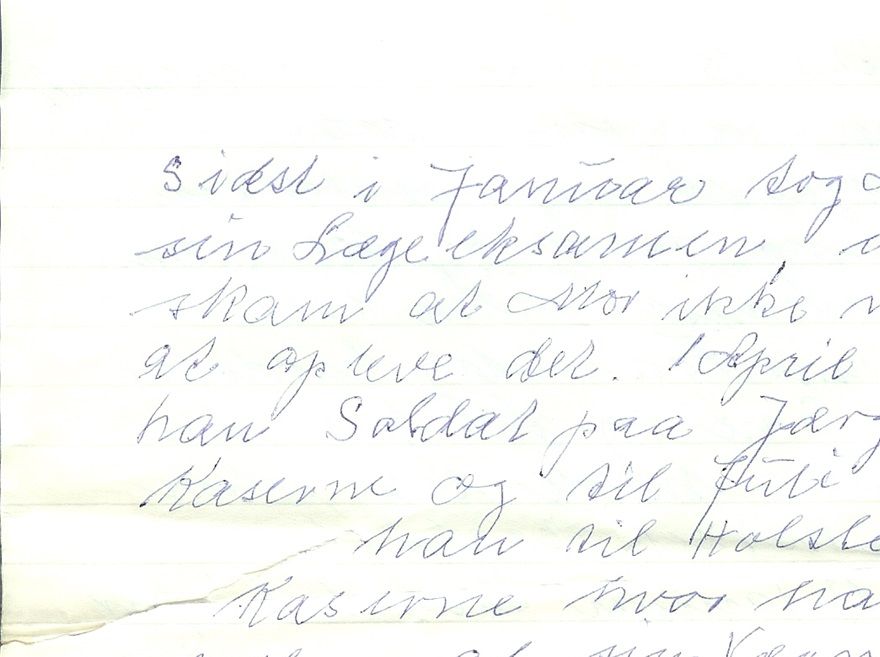 Sidst i Januar tog
sin Lægeeksamen
skam at Mor ikke
at opleve det. 1 April
han Soldat paa Jærg
Kaserne og til Juli
han til Holste
Kaserne hvor ha